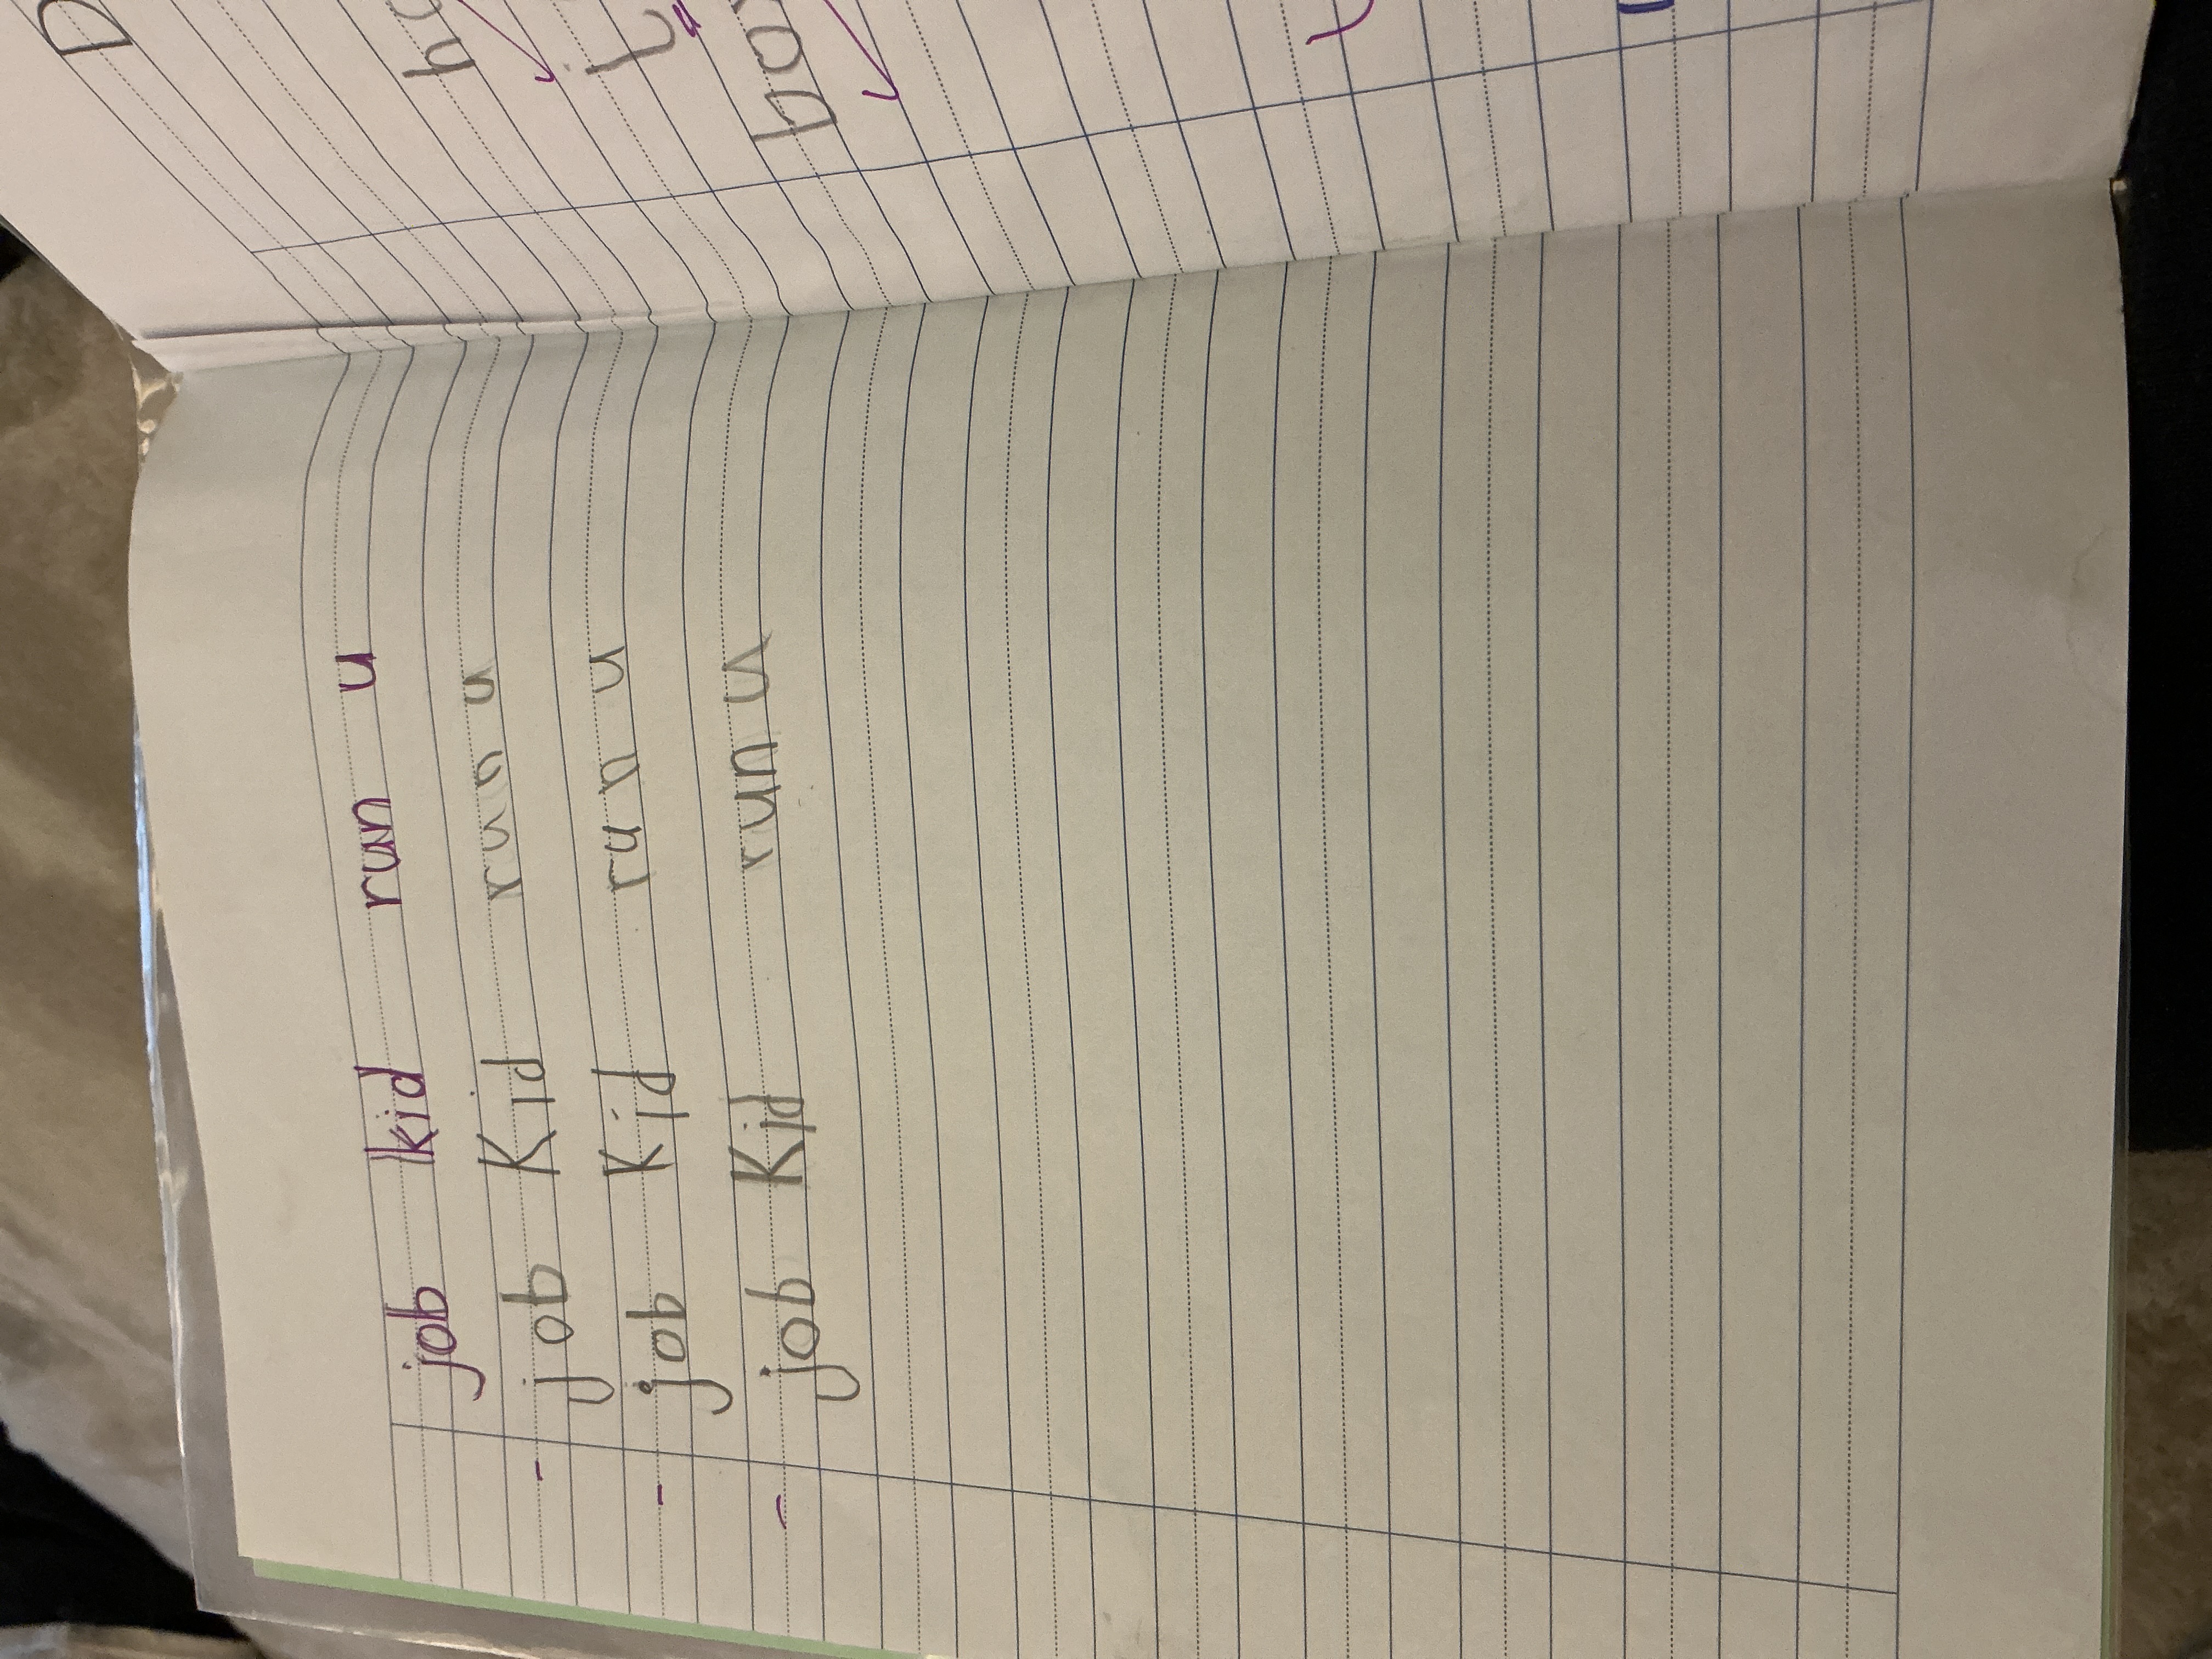 job kid run u
job Kid run u
job Kid run u
job Kid run u